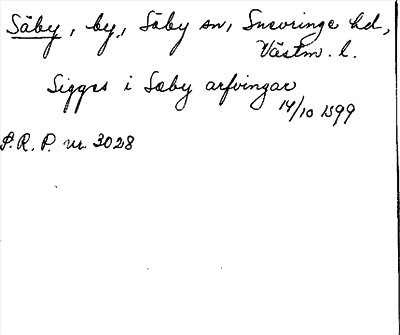 Säby, by, Säby sn, Snevringe hd,
Västm. l.
Sigges i Sæby arfvingar
14/10 1399
S.R.P. nr 3028